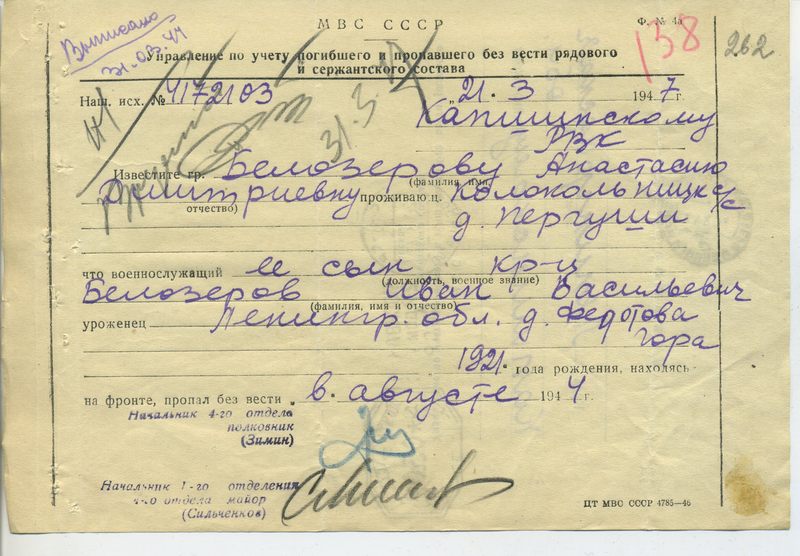 МВС СССР
Ф. № 4а
Выписано
31.03.47
138
262
Управление по учету погибшего и пропавшего без вести рядового
и сержантского состава
Наш. исх. № 4172103 „21. 3 1947 г.
Капшинскому
РВК
31.3.47
Известите гр. Белозерову Анастасию
(фамилия, имя,
Дмитриевну проживающ. Колокольницк с/с
отчество)
д. Пергуши
что военнослужащий ее сын кр-ц
(должность, военное звание)
Белозеров Иван Васильевич
(фамилия, имя и отчество)
уроженец Ленингр. обл. д. Федотова
Гора
1921. года рождения, находясь
на фронте, пропал без вести „ в. августе 1944 г.
Начальник 4-го отдела
полковник
(Зимин)
Начальник 1-го отделения
4-го отдела майор
(Сильченков)
ЦТ МВС СССР 4785—46